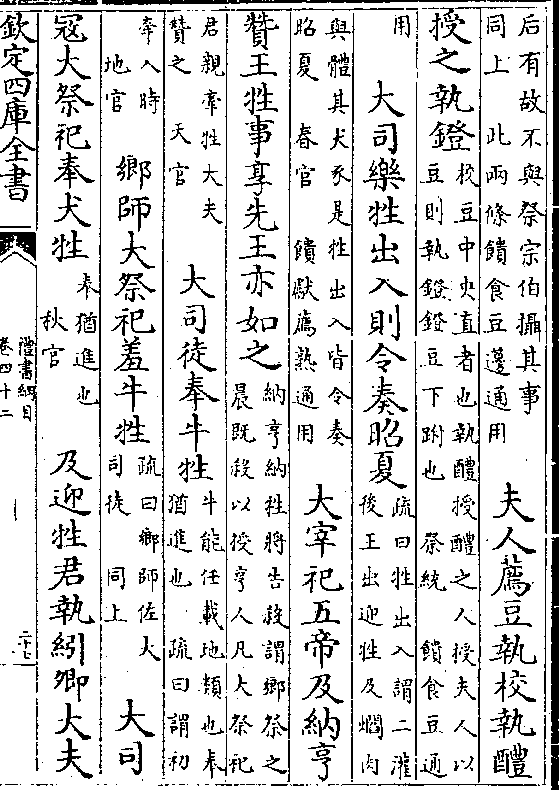 后有故不與祭宗伯攝其事
同上 此兩條饋食豆籩通用
夫人薦豆執校執醴
授之執鐙
校豆中央直者也執醴授醴之人授夫人以
豆則執鐙鐙豆下跗也 祭統 饋食豆通
用
大司樂牲出入則令奏昭夏
疏曰牲出入謂二灌
後王出迎牲及爓肉
與體其犬豕是牲出入皆令奏
昭夏 春官 饋獻薦熟通用
大宰祀五帝及納亨
贊王牲事享先王亦如之
納亨納牲將告殺謂鄉祭之
晨既殺以授亨人凡大祭祀
君親牽牲大夫
贊之 天官
大司徒奉牛牲
牛能任載地類也奉
猶進也 疏曰謂初
牽入時
地官
鄉師大祭祀羞牛牲
疏曰鄉師佐大
司徒 同上
大司
寇大祭祀奉犬牲
奉猶進也
秋官
及迎牲君執紖卿大夫
欽定四庫全書
禮書綱目
卷四十二
二十七